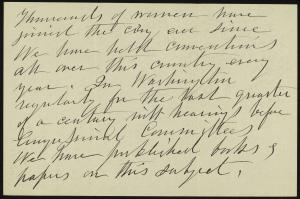 Thousands of women have
joined that cry ever since
We have held conventions
all over this country every
year. In Washington
regularly for the last quarter
of a century with hearings before
Congressional Committees
We have published books &
papers on this subject.